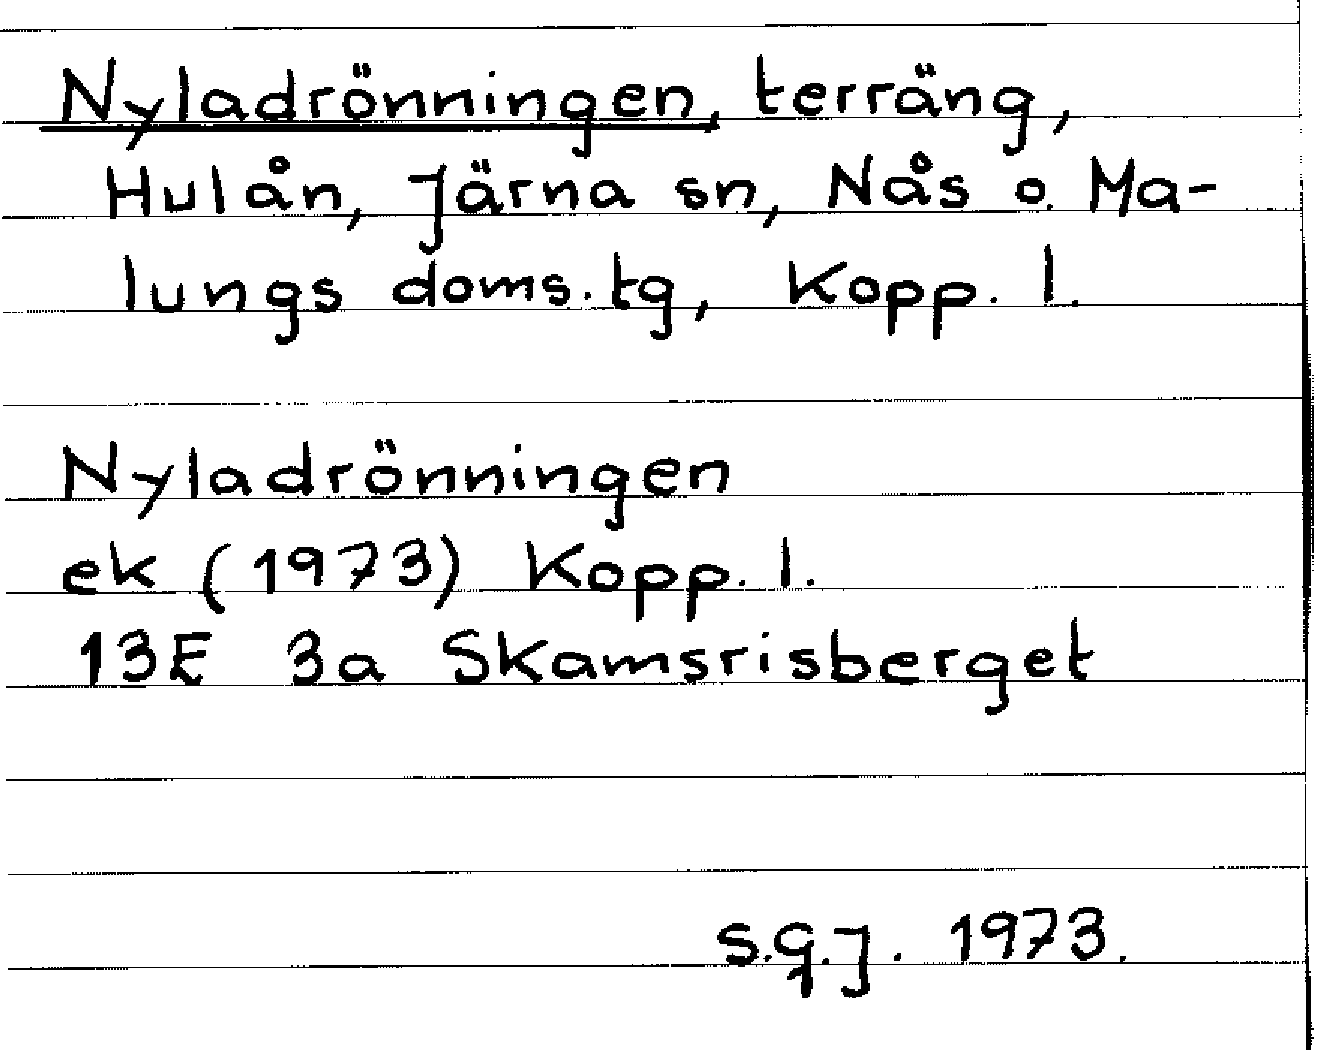 Nyladrönningen, terräng,
Hulån, Järna sn, Nås o. Ma-
lungs doms.tg, Kopp. l.
Nyladrönningen
ek (1973) Kopp. l.
13E 3a Skamsrisberget
S.G.J. 1973.